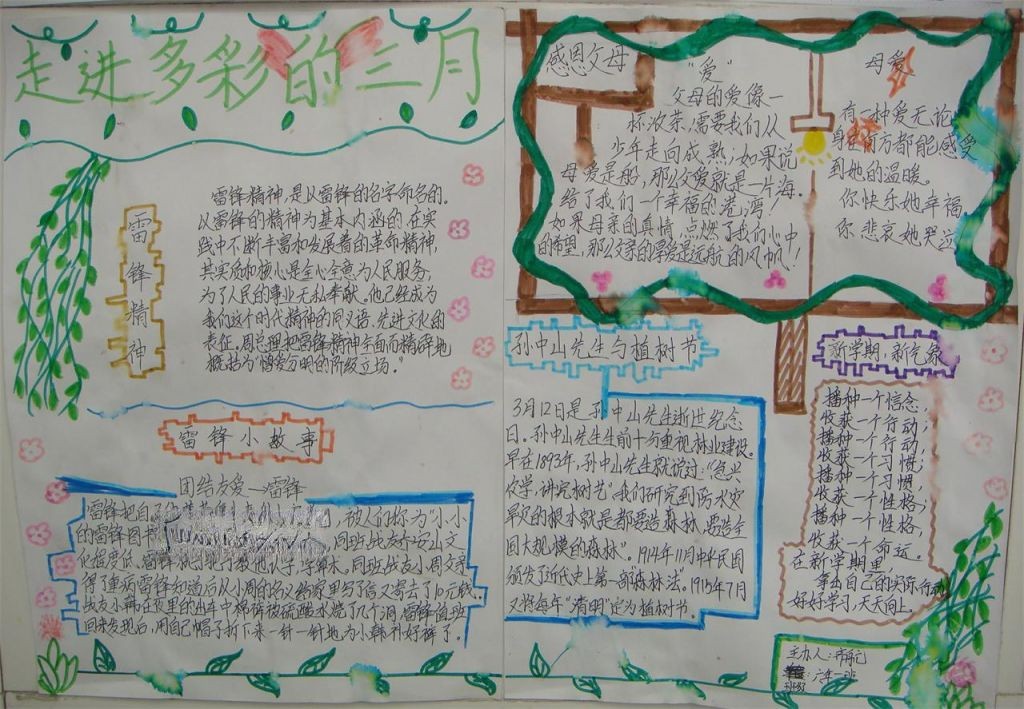 走进多彩的三月
雷锋精神
雷锋精神,是以雷锋的名字命名的,
以雷锋的精神为基本内涵的,在实
践中不断丰富和发展着的革命精神,
其实质和核心是全心全意为人民服务,
为了人民的事业无私奉献。他已经成为
我们这个时代精神的同义语、先进文化的
表征。周总理把雷锋精神全面而精辟地
概括为“憎爱分明的阶级立场。”
雷锋小故事
团结友爱—雷锋
雷锋把自己
被人们称为“小小
的雷锋图书
同班战友乔安山文
化程度低,雷锋就
教他认字,学算术。同班战友小周父亲
得了重病雷锋知道后从小周的名义给家里写了信又寄去了10元钱。
战友小韩在夜里的出车中棉裤被硫酸水烧了几个洞,雷锋值班
回来发现后,用自己帽子拆下来一针一针地为小韩补好裤了。
感恩父母
“爱”
父母的爱像一
杯浓茶,需要我们从
少年走向成熟,如果说
母爱是船,那么父爱就是一片海。
给了我们一个幸福的港湾!
如果母亲的真情,点燃了我们心中
的希望,那么父亲的厚爱是远航的风帆!
母爱
有一种爱无论
身在何方都能感受
到她的温暖。
你快乐她幸福,
你悲哀她哭泣
孙中山先生与植树节
3月12日是孙中山先生逝世纪念
日。孙中山先生生前十分重视林业建设。
早在1893年,孙中山先生就说过:“急兴
农学,讲究树艺”我们研究到防水灾
旱灾的根本就是都要造森林,要造全
国大规模的森林”。1914年11月中华民国
颁发了近代史上第一部“森林法”。1915年7月
又将每年“清明”定为植树节。
新学期,新气象
播种一个信念,
收获一个行动;
播种一个行动,
收获一个习惯;
播种一个习惯,
收获一个性格;
播种一个性格,
收获一个命运。
在新学期里,
拿出自己的实际行动
好好学习,天天向上。
主办人:
班级:六年一班